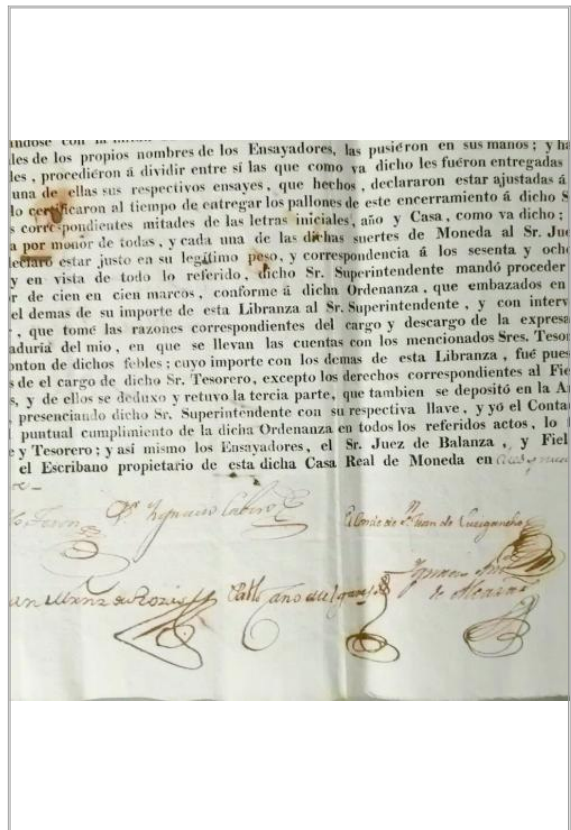 indose con la mitad
les de los propios nombres de los Ensayadores, las pusiéron en sus manos; y ha
les, procediéron á dividir entre sí las que como va dicho les fuéron entregadas
una de ellas sus respectivos ensayes, que hechos, declararon estar ajustadas á
lo certificaron al tiempo de entregar los pallones de este encerramiento á dicho S
s correspondientes mitades de las letras iniciales, año y Casa, como va dicho;
a por menor de todas, y cada una de las dichas suertes de Moneda al Sr. Jue
declaró estar justo en su legítimo peso, y correspondencia á los sesenta y ocho
y en vista de todo lo referido, dicho Sr. Superintendente mandó proceder
r de cien en cien marcos, conforme á dicha Ordenanza, que embazados en
el demas de su importe de esta Libranza al Sr. Superintendente, y con interv
, que tomé las razones correspondientes del cargo y descargo de la expresa
aduría del mio, en que se llevan las cuentas con los mencionados Sres. Tesor
onton de dichos febles; cuyo importe con los demas de esta Libranza, fué pues
s de el cargo de dicho Sr. Tesorero, excepto los derechos correspondientes al Fie
s, y de ellos se deduxo y retuvo la tercia parte, que tambien se depositó en la A
, presenciando dicho Sr. Superintendente con su respectiva llave, y yó el Conta
l puntual cumplimiento de la dicha Ordenanza en todos los referidos actos, lo
e y Tesorero; y así mismo los Ensayadores, el Sr. Juez de Balanza, y Fiel
el Escribano propietario de esta dicha Casa Real de Moneda en
Ygnacio
El Conde de Sn. Juan de Lurigancho
Pablo Cano